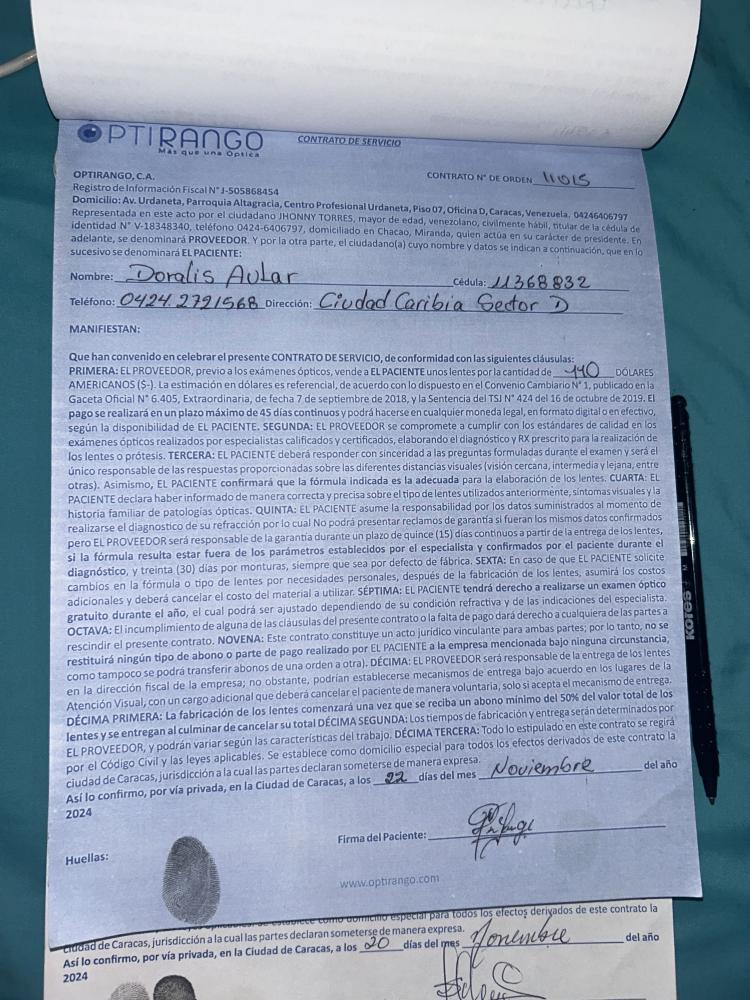 OPTIRANGO
Más que una Óptica
CONTRATO DE SERVICIO
OPTIRANGO, C.A.
CONTRATO N° DE ORDEN 11015
Registro de Información Fiscal N° J-505868454
Domicilio: Av. Urdaneta, Parroquia Altagracia, Centro Profesional Urdaneta, Piso 07, Oficina D, Caracas, Venezuela, 04246406797
Representada en este acto por el ciudadano JHONNY TORRES, mayor de edad, venezolano, civilmente hábil, titular de la cédula de
identidad N° V-18348340, teléfono 0424-6406797, domiciliado en Chacao, Miranda, quien actúa en su carácter de presidente. En
adelante, se denominará PROVEEDOR. Y por la otra parte, el ciudadano(a) cuyo nombre y datos se indican a continuación, que en lo
sucesivo se denominará EL PACIENTE:
Nombre: Doralis Aular Cédula: 11368832
Teléfono: 0424.2791568 Dirección: Ciudad Caribia Sector D
MANIFIESTAN:
Que han convenido en celebrar el presente CONTRATO DE SERVICIO, de conformidad con las siguientes cláusulas:
PRIMERA: EL PROVEEDOR, previo a los exámenes ópticos, vende a EL PACIENTE unos lentes por la cantidad de 440 DÓLARES
AMERICANOS ($-). La estimación en dólares es referencial, de acuerdo con lo dispuesto en el Convenio Cambiario N° 1, publicado en la
Gaceta Oficial N° 6.405, Extraordinaria, de fecha 7 de septiembre de 2018, y la Sentencia del TSJ N° 424 del 16 de octubre de 2019. El
pago se realizará en un plazo máximo de 45 días continuos y podrá hacerse en cualquier moneda legal, en formato digital o en efectivo,
según la disponibilidad de EL PACIENTE. SEGUNDA: EL PROVEEDOR se compromete a cumplir con los estándares de calidad en los
exámenes ópticos realizados por especialistas calificados y certificados, elaborando el diagnóstico y RX prescrito para la realización de
los lentes o prótesis. TERCERA: EL PACIENTE deberá responder con sinceridad a las preguntas formuladas durante el examen y será el
único responsable de las respuestas proporcionadas sobre las diferentes distancias visuales (visión cercana, intermedia y lejana, entre
otras). Asimismo, EL PACIENTE confirmará que la fórmula indicada es la adecuada para la elaboración de los lentes. CUARTA: EL
PACIENTE declara haber informado de manera correcta y precisa sobre el tipo de lentes utilizados anteriormente, síntomas visuales y la
historia familiar de patologías ópticas. QUINTA: EL PACIENTE asume la responsabilidad por los datos suministrados al momento de
realizarse el diagnostico de su refracción por lo cual No podrá presentar reclamos de garantía si fueran los mismos datos confirmados
pero EL PROVEEDOR será responsable de la garantía durante un plazo de quince (15) días continuos a partir de la entrega de los lentes,
si la fórmula resulta estar fuera de los parámetros establecidos por el especialista y confirmados por el paciente durante el
diagnóstico, y treinta (30) días por monturas, siempre que sea por defecto de fábrica. SEXTA: En caso de que EL PACIENTE solicite
cambios en la fórmula o tipo de lentes por necesidades personales, después de la fabricación de los lentes, asumirá los costos
adicionales y deberá cancelar el costo del material a utilizar. SÉPTIMA: EL PACIENTE tendrá derecho a realizarse un examen óptico
gratuito durante el año, el cual podrá ser ajustado dependiendo de su condición refractiva y de las indicaciones del especialista.
OCTAVA: El incumplimiento de alguna de las cláusulas del presente contrato o la falta de pago dará derecho a cualquiera de las partes a
rescindir el presente contrato. NOVENA: Este contrato constituye un acto jurídico vinculante para ambas partes; por lo tanto, no se
restituirá ningún tipo de abono o parte de pago realizado por EL PACIENTE a la empresa mencionada bajo ninguna circunstancia,
como tampoco se podrá transferir abonos de una orden a otra). DÉCIMA: EL PROVEEDOR será responsable de la entrega de los lentes
en la dirección fiscal de la empresa; no obstante, podrían establecerse mecanismos de entrega bajo acuerdo en los lugares de la
Atención Visual, con un cargo adicional que deberá cancelar el paciente de manera voluntaria, solo si acepta el mecanismo de entrega.
DÉCIMA PRIMERA: La fabricación de los lentes comenzará una vez que se reciba un abono mínimo del 50% del valor total de los
lentes y se entregan al culminar de cancelar su total DÉCIMA SEGUNDA: Los tiempos de fabricación y entrega serán determinados por
EL PROVEEDOR, y podrán variar según las características del trabajo. DÉCIMA TERCERA: Todo lo estipulado en este contrato se regirá
por el Código Civil y las leyes aplicables. Se establece como domicilio especial para todos los efectos derivados de este contrato la
ciudad de Caracas, jurisdicción a la cual las partes declaran someterse de manera expresa.
Así lo confirmo, por vía privada, en la Ciudad de Caracas, a los 22 días del mes Noviembre del año
2024
Firma del Paciente:
Huellas:
www.optirango.com
establece como domicilio especial para todos los efectos derivados de este contrato la
ciudad de Caracas, jurisdicción a la cual las partes declaran someterse de manera expresa.
Así lo confirmo, por vía privada, en la Ciudad de Caracas, a los 20 días del mes Noviembre del año
2024
kores